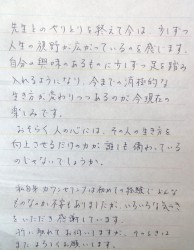 先生とのやりとりを終えて今は、少しずつ
人生の視野が広がっているのを感じます。
自分の興味のあるものに少しずつ足を踏み
入れるようになり、今までの消極的な
生き方が変わりつつあるのが今現在の
楽しみです。
おそらく人の心には、その人の生き方を
向上させるだけの力が誰にも備わっている
のじゃないでしょうか。
私自身カウンセリングは初めての経験でどんな
ものなのか不安もありましたが、いろいろな気づき
をいただき感謝しています。
折に触れてお伺いしますが、そのときは
またよろしくお願いします。